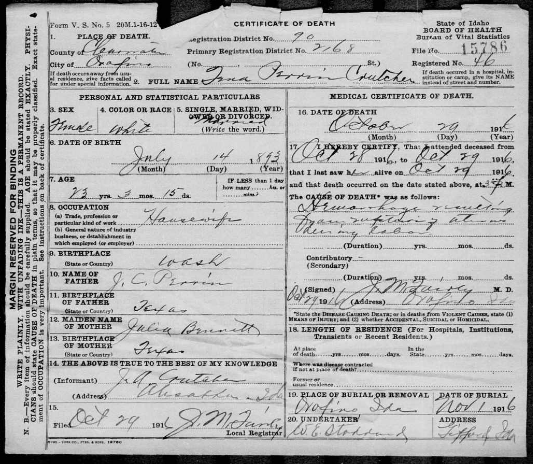 Form V. S. No. 5 20M.1-16-12
CERTIFICATE OF DEATH
State of Idaho
BOARD OF HEALTH
Bureau of Vital Statistics
1. PLACE OF DEATH.
County of Clearwater
City of Orofino
Registration District No. 90
Primary Registration District No. 2168
(No. St.)
File No. 15786
Registered No. 46
If death occurred away from usual residence, give facts called for under special information.
2. FULL NAME Perrin Crutcher
If death occurred in a hospital, institution or camp, give its NAME instead of street and number.
PERSONAL AND STATISTICAL PARTICULARS
3. SEX
Female
4. COLOR OR RACE
White
5. SINGLE, MARRIED, WIDOWED OR DIVORCED.
Married
(Write the word.)
6. DATE OF BIRTH
July 14 1893
(Month) (Day) (Year)
7. AGE
23 yrs. 3 mos. 15 ds.
IF LESS than 1 day
how many hrs.
or min.
8. OCCUPATION
(a) Trade, profession or
particular kind of work
Housewife
(b) General nature of industry
business, or establishment in
which employed (or employer)
9. BIRTHPLACE
(State or Country)
Wash
10. NAME OF
FATHER
J. C. Perrin
11. BIRTHPLACE
OF FATHER
(State or Country)
Texas
12. MAIDEN NAME
OF MOTHER
Julia Bennett
13. BIRTHPLACE
OF MOTHER
(State or Country)
Texas
14. THE ABOVE IS TRUE TO THE BEST OF MY KNOWLEDGE
(Informant) Crutcher
(Address) Ahsahka Ida
15.
Filed Oct 29 1916
Local Registrar
MEDICAL CERTIFICATE OF DEATH.
16. DATE OF DEATH
October 29 1916
(Month) (Day) (Year)
17. I HEREBY CERTIFY, That I attended deceased
from Oct 28 1916, to Oct 29 1916,
that I last saw h alive on Oct 29 1916,
and that death occurred on the date stated above, at M.
The CAUSE OF DEATH* was as follows:
Hemorrhage resulting
from
during labor
(Duration) yrs. mos. ds.
Contributory
(Secondary)
(Duration) yrs. mos. ds.
(Signed) M. D.
Oct 29 1916 (Address) Orofino Ida
*State the DISEASE CAUSING DEATH; or in deaths from VIOLENT CAUSES, state (1) MEANS OF INJURY; and (2) whether ACCIDENTAL, SUICIDAL, or HOMICIDAL.
18. LENGTH OF RESIDENCE (For Hospitals, Institutions, Transients or Recent Residents.)
At place
of death yrs. mos. ds. In the State yrs. mos. ds.
Where was disease contracted
if not at place of death?
Former or
usual residence
19. PLACE OF BURIAL OR REMOVAL
Orofino Ida
DATE OF BURIAL
Nov 1 1916
20. UNDERTAKER
W. E. Stoddard
ADDRESS
MARGIN RESERVED FOR BINDING
WRITE PLAINLY, WITH UNFADING INK—THIS IS A PERMANENT RECORD.